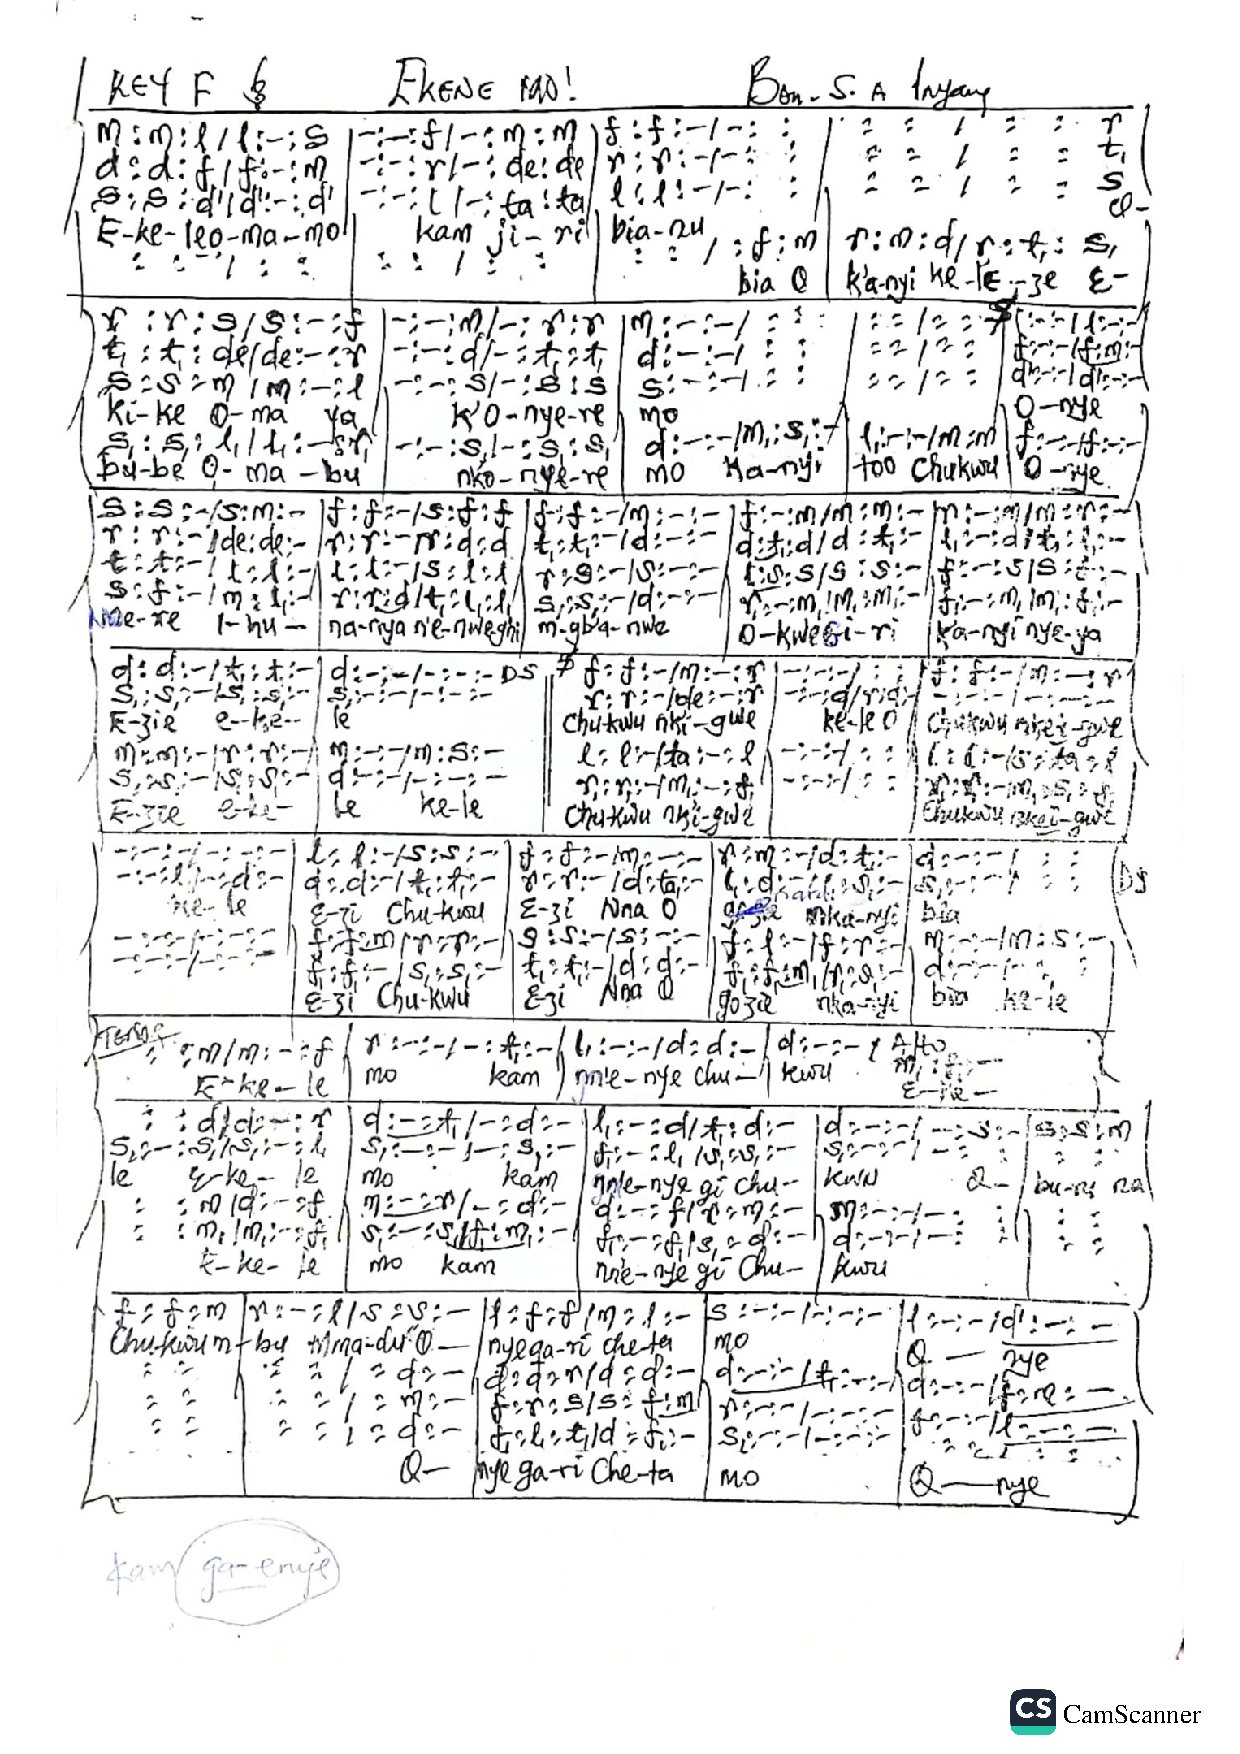 KEY F EKENE MO! Bon. S. A Inyang
m : m : l / l : - : s - : - : f / - : m : m f : f : - / - : : : : / : : r
d : d : f / f : - : m - : - : r / - : de : de r : r : - / - : : : : / : : t,
s : s : d' / d' : - : d' - : - : l / - : ta : ta l : l : - / - : : : : / : : s
O-
E-ke-leo-ma-mo kam ji-ri bia-nu
: : / : : : : / : : : : / : f : m r : m : d / r : t, : s,
bia O k'a-nyi ke-le-ze E-
r : r : s / s : - : f - : - : m / - : r : r m : - : - / : : : : / : : l : - : - / l : - : -
t, : t, : de / de : - : r - : - : d / - : t, : t, d : - : - / : : : : / : : f : - : - / f : m : -
s : s : m / m : - : l - : - : s / - : s : s s : - : - / : : : : / : : d' : - : - / d' : - : -
ki-ke O-ma ya k'O-nye-re mo O-nye
s, : s, : l, / l, : - : - : - : s, / - : s, : s, d : - : - / m, : s, : - l, : - : - / m : m f : - : - / f : - : -
bu-be O-ma-bu nko-nye-re mo Ka-nyi too Chukwu O-nye
s : s : - / s : m : - f : f : - / s : f : f f : f : - / m : - : - f : - : m / m : m : - r : - : m / m : r : -
r : r : - / de : de : - r : r : - / r : d : d t, : t, : - / d : - : - d : t, : d / d : t, : - l, : - : d / t, : l, : -
t : t : - / l : l : - l : l : - / s : l : l r : s : - / s : - : - l : s : s / s : s : - f : - : s / s : f : -
s : f : - / m : l, : - r : r : d / t, : l, : l, s, : s, : - / d : - : - r, : - : m, / m, : m, : - f, : - : m, / m, : f, : -
Me-re I-hu- na-nya n'e-nweghi m-gb'a-nwe O-kwe Gi-ri k'a-nyi nye-ya
d : d : - / t, : t, : - d : - : - / - : - : - DS f : f : - / m : - : r - : - : - / : : f : f : - / m : - : r
s, : s, : - / s, : s, : - s, : - : - / - : - : - r : r : - / de : - : r - : - : d / r : d : - - : - : - / - : - : -
E-zie e-ke- le Chu-kwu nki-gwe ke-le O Chukwu nke i-gwe
m : m : - / r : r : - m : - : - / m : s : - l : l : - / ta : - : l - : - : - / : : l : l : - / s : ta : l
s, : s, : - / s, : s, : - d : - : - / - : - : - r, : r, : - / m, : - : f, - : - : - / : : r, : r, : - m, : s, : f,
E-zie e-ke- le ke-le Chu-kwu nki-gwe Chukwu nkei-gwe
- : - : - / - : - : - l : l : - / s : s : - f : f : - / m : - : - r : m : - / d : t, : - d : - : - / : :
- : - : l / - : d : - d : d : - / t, : t, : - r : r : - / d : ta, : - l, : d : - / l, : s, : - s, : - : - / : : DS
ke-le E-zi Chu-kwu E-zi Nna O nka-nyi bia
- : - : - / - : - : - f : f : m / r : r : - s : s : - / s : - : - f : l : - / f : r : - m : - : - / m : s : -
- : - : - / - : - : - f, : f, : - / s, : s, : - t, : t, : - / d : d : - f, : f, : m, / r, : s, : - d : - : - / - : - : -
E-zi Chu-kwu E-zi Nna O gozie nka-nyi bia ke-le
: : m / m : - : f r : - : - / - : t, : - l, : - : - / d : d : - d : - : - / Alto
E-ke-le mo kam nn'e-nye chu- kwu E-ke-
: : d / d : - : r d : - : t, / - : d : - l, : - : d / t, : d : - d : - : - / - : s : - s : s : m
s, : - : s, / s, : - : l, s, : - : - / - : s, : - f, : - : l, / s, : s, : - s, : - : - / - : : : :
le E-ke-le mo kam nn'e-nye gi chu- kwu O- bu-ru na
: : m / d : - : f m : - : r / - : d : - d : - : f / r : m : - m : - : - / - : : : :
: : m, / m, : - : f, s, : - : s, / f, : m, : - f, : - : f, / s, : d : - d : - : - / - : : : :
E-ke-le mo kam nn'e-nye gi Chu- kwu
f : f : m r : - : l / s : s : - l : f : f / m : l : - s : - : - / - : - : - l : - : - / d' : - : -
Chu-kwu m-bu Mma-du O- nyega-ri che-ta mo O- nye
: : : : / : d : - d : d : r / d : d : - d : - : - / t, : - : - d : - : - / f : m : -
: : : : / : m : - f : r : s / s : f : m r : - : - / - : - : - f : - : - / l : - : -
: : : : / : d : - f, : l, : t, / d : f, : - s, : - : - / - : - : - : : / : :
O- nye ga-ri Che-ta mo O-nye
kam ga-enye
CS CamScanner